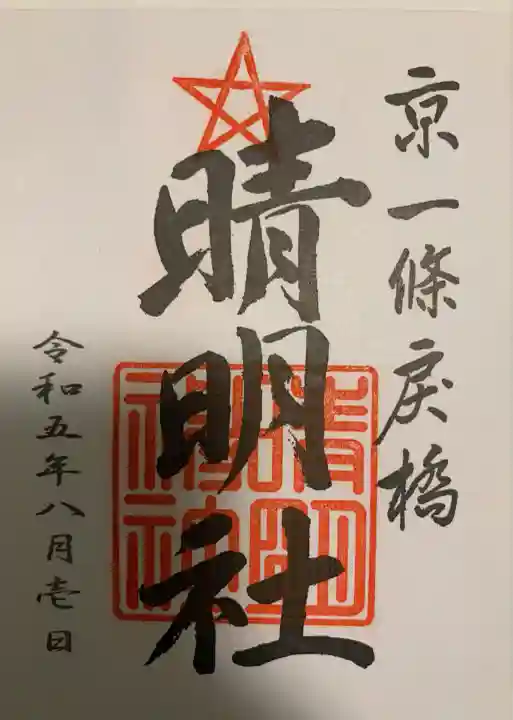 京一條戻橋
晴明社
晴明
神社
令和五年八月壱日